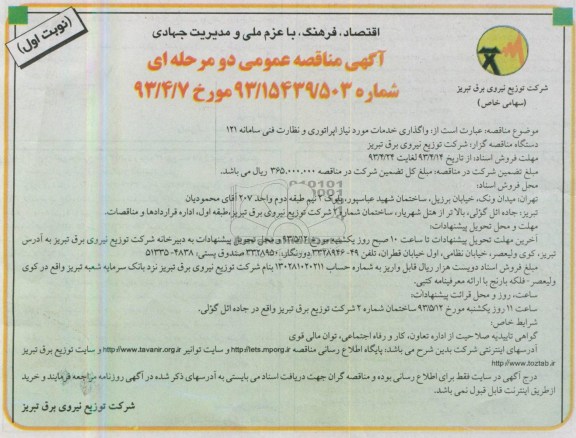 (نوبت اول)
اقتصاد، فرهنگ، با عزم ملی و مدیریت جهادی
آگهی مناقصه عمومی دو مرحله ای
شماره ۹۳/۱۵۴۳۹/۵۰۳ مورخ ۹۳/۴/۷
شرکت توزیع نیروی برق تبریز
(سهامی خاص)
موضوع مناقصه: عبارت است از: واگذاری خدمات مورد نیاز اپراتوری و نظارت فنی سامانه ۱۲۱
دستگاه مناقصه گزار: شرکت توزیع نیروی برق تبریز
مهلت فروش اسناد: از تاریخ ۹۳/۴/۱۴ لغایت ۹۳/۴/۲۴
مبلغ تضمین شرکت در مناقصه: مبلغ کل تضمین شرکت در مناقصه ۳۶۵.۰۰۰.۰۰۰ ریال می باشد.
محل فروش اسناد:
تهران: میدان ونک، خیابان برزیل، ساختمان شهید عباسپور، بلوک ۲ نیم طبقه دوم واحد ۲۰۷ آقای محمودیان
تبریز: جاده ائل گؤلی، بالاتر از هتل شهریار، ساختمان شماره ۲ شرکت توزیع نیروی برق تبریز، طبقه اول، اداره قراردادها و مناقصات.
مهلت و محل تحویل پیشنهادات:
آخرین مهلت تحویل پیشنهادات تا ساعت ۱۰ صبح روز یکشنبه مورخ ۹۳/۵/۱۲ و محل تحویل پیشنهادات به دبیرخانه شرکت توزیع نیروی برق تبریز به آدرس
تبریز، کوی ولیعصر، خیابان نظامی، اول خیابان قطران، تلفن ۴۹-۳۳۲۸۹۴۶ دورنگار: ۳۳۲۸۹۵۰ صندوق پستی: ۴۸۳۸-۵۱۳۳۵
مبلغ فروش اسناد دویست هزار ریال قابل واریز به شماره حساب ۱۳۰۲۸۱۰۲۰۲۱۱ بنام شرکت توزیع نیروی برق تبریز نزد بانک سرمایه شعبه تبریز واقع در کوی
ولیعصر - فلکه بارنج با ارائه معرفینامه کتبی.
ساعت، روز و محل قرائت پیشنهادات:
ساعت ۱۱ روز یکشنبه مورخ ۹۳/۵/۱۲ ساختمان شماره ۲ شرکت توزیع نیروی برق تبریز واقع در جاده ائل گؤلی.
شرایط خاص:
گواهی تاییدیه صلاحیت از اداره تعاون، کار و رفاه اجتماعی، توان مالی قوی
آدرسهای اینترنتی شرکت بدین شرح می باشد: پایگاه اطلاع رسانی مناقصه http://iets.mporg.ir و سایت توانیر http://www.tavanir.org.ir و سایت توزیع برق تبریز
http://www.toztab.ir
درج آگهی در سایت فقط برای اطلاع رسانی بوده و مناقصه گران جهت دریافت اسناد می بایستی به آدرسهای ذکر شده در آگهی روزنامه مراجعه فرمایند و خرید
از طریق اینترنت قابل قبول نمی باشد.
شرکت توزیع نیروی برق تبریز